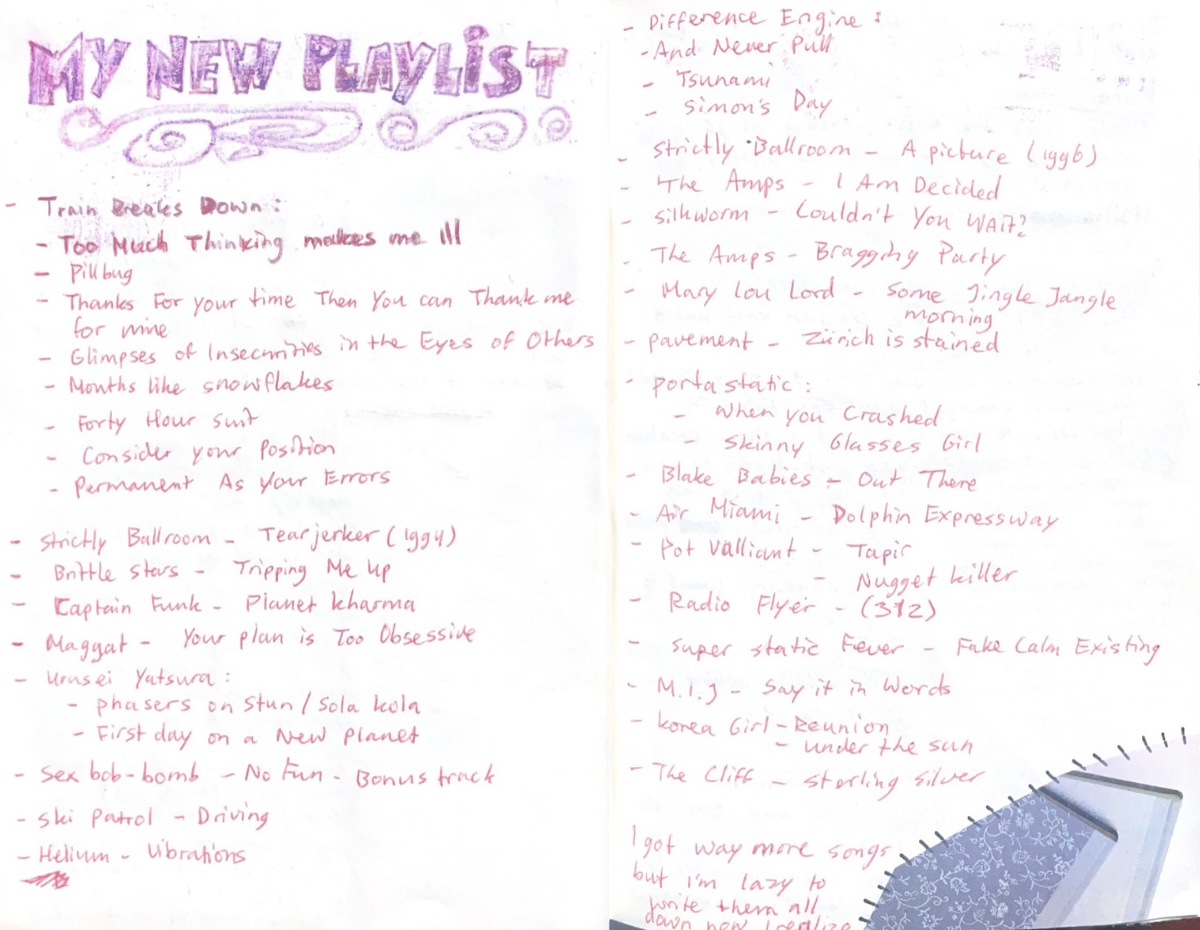 MY NEW PLAYLIST
- Train Breaks Down:
- Too Much Thinking makes me Ill
- Pillbug
- Thanks For your time Then You can Thank me
for mine
- Glimpses of Insecurities in the Eyes of Others
- Months like snowflakes
- Forty Hour suit
- Consider your Position
- Permanent As Your Errors
- Strictly Ballroom - Tearjerker (1994)
- Brittle Stars - Tripping Me Up
- Captain Funk - Planet kharma
- Maggat - Your plan is Too Obsessive
- Urusei Yatsura:
- phasers on Stun / Sola kola
- First day on a New Planet
- Sex bob-bomb - No Fun - Bonus track
- Ski Patrol - Driving
- Helium - Vibrations
- Difference Engine:
- And Never Pull
- Tsunami
- Simon's Day
- Strictly Ballroom - A picture (1996)
- The Amps - I Am Decided
- Silkworm - Couldn't You Wait?
- The Amps - Bragging Party
- Mary Lou Lord - Some Jingle Jangle
morning
- pavement - Zürich is stained
- portastatic:
- When you Crashed
- Skinny Glasses Girl
- Blake Babies - Out There
- Air Miami - Dolphin Expressway
- Pot Valliant - Tapir
- Nugget killer
- Radio Flyer - (312)
- Super static Fever - Fake Calm Existing
- M.I.J - Say it in Words
- Korea Girl - Reunion
- under the sun
- The Cliff - sterling silver
I got way more songs
but i'm lazy to
write them all
down now I realize